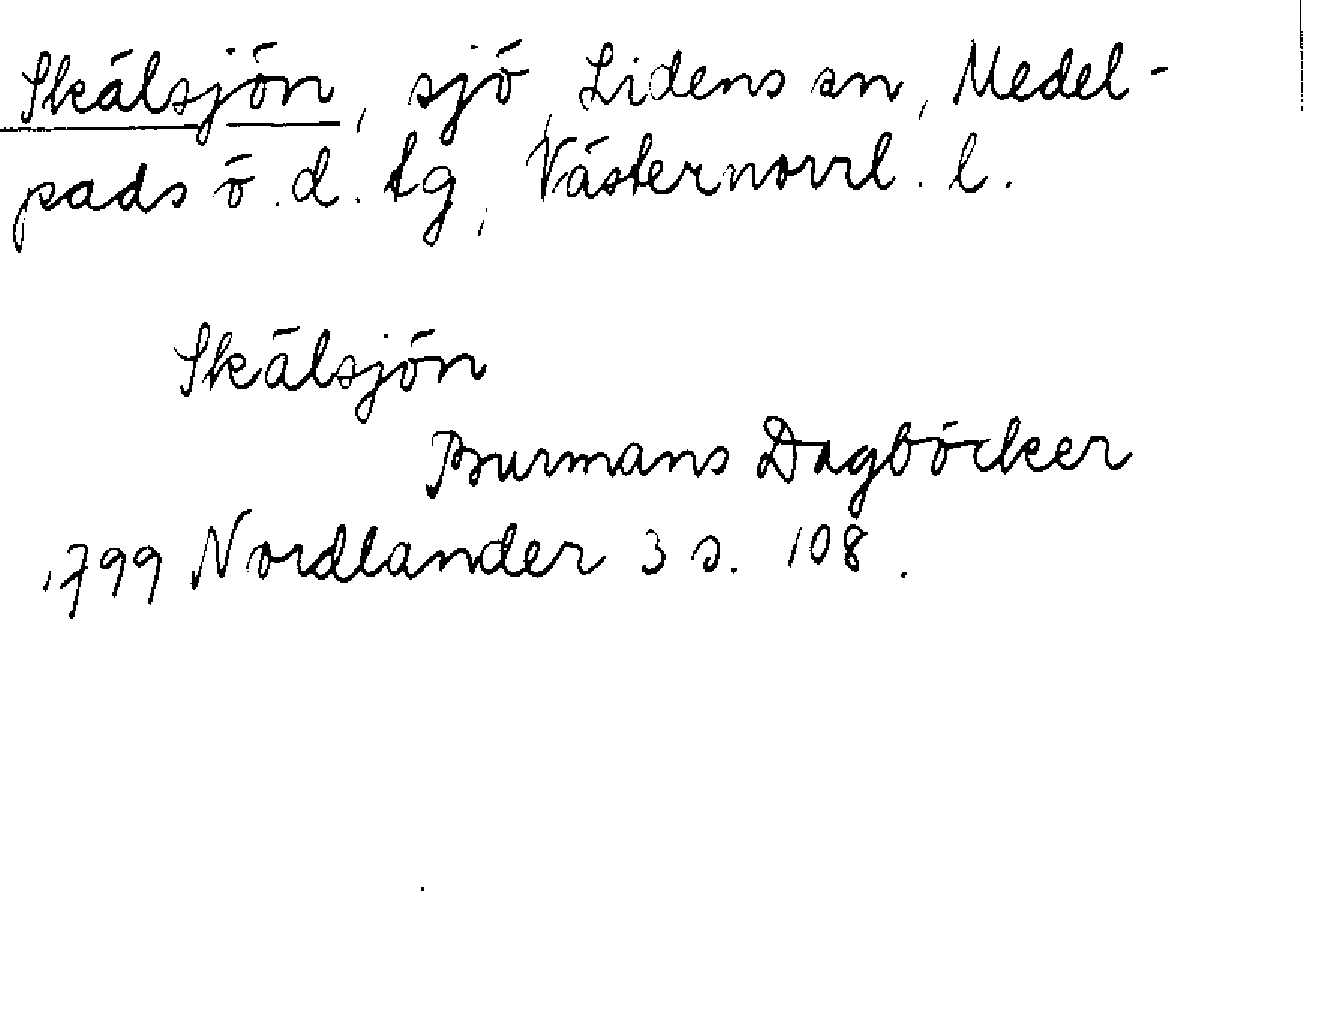 Skälsjön, sjö, Lidens sn, Medel-
pads ö. d. tg, Västernorrl. l.
Skälsjön
Burmans Dagböcker
1799 Nordlander 3 s. 108.